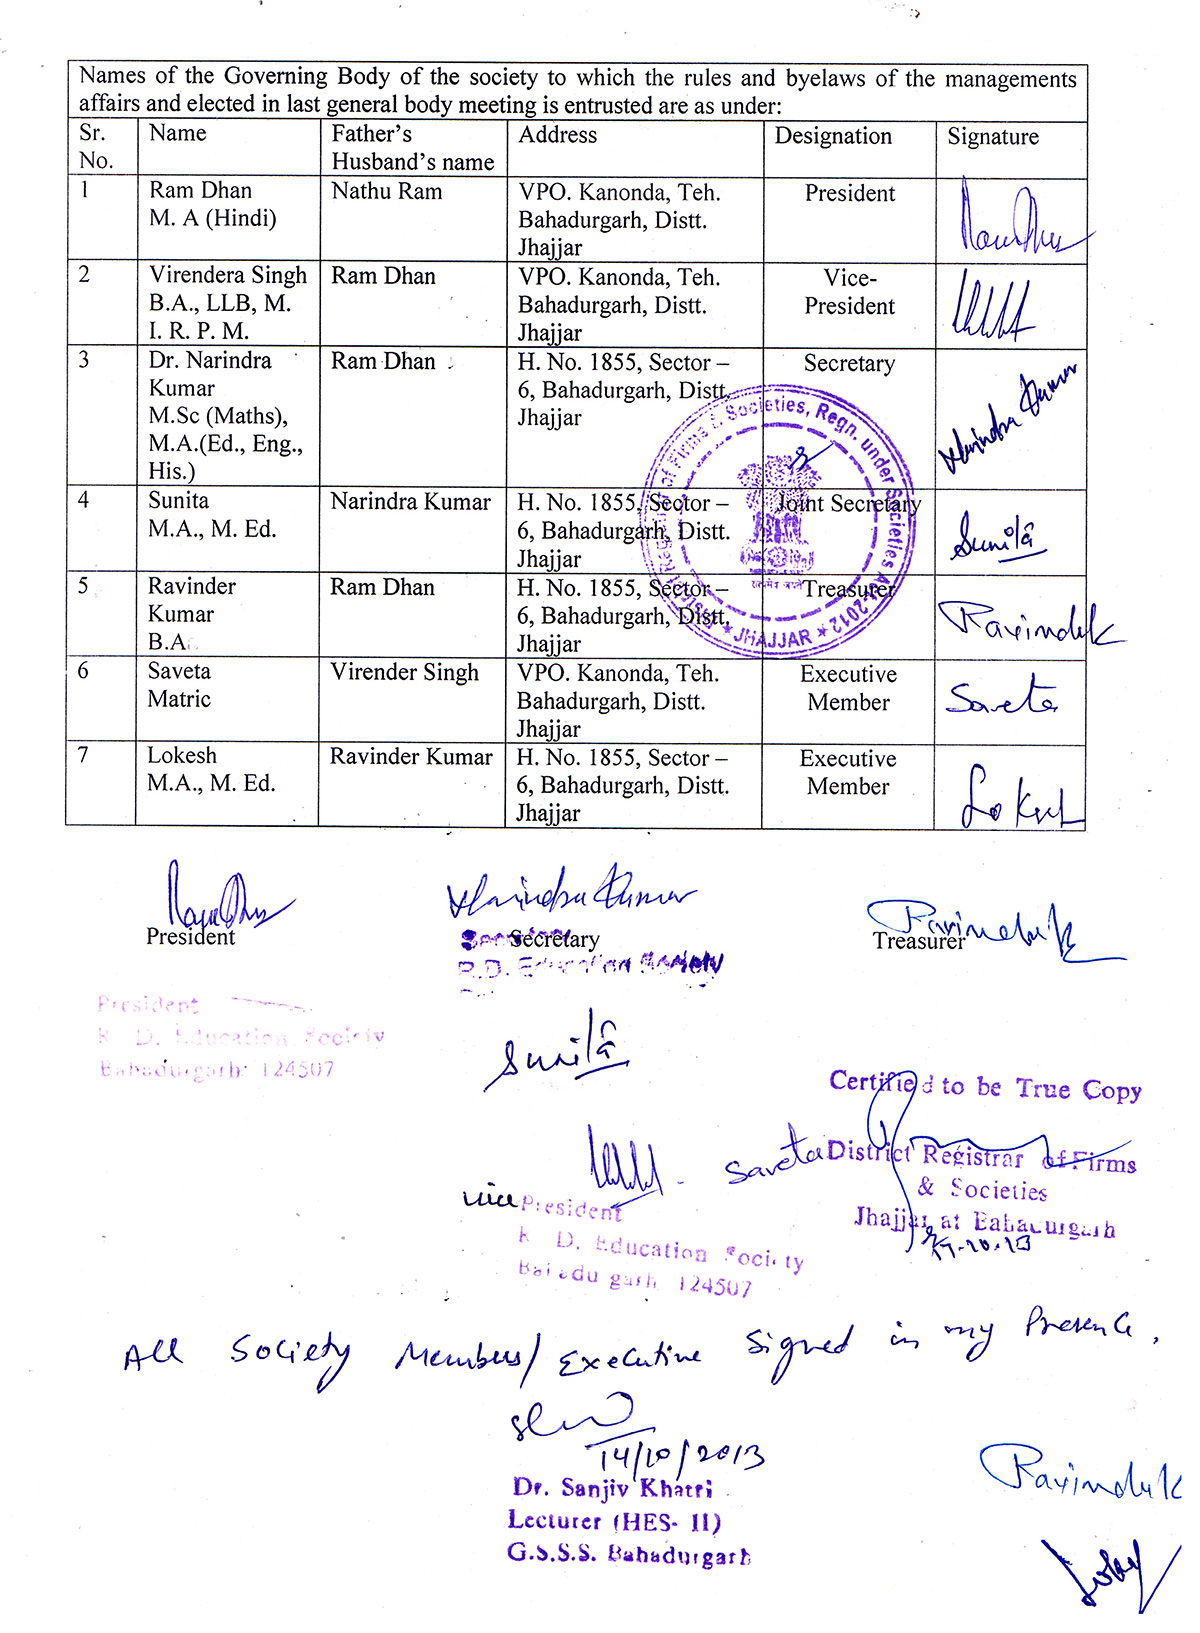 Names of the Governing Body of the society to which the rules and byelaws of the managements
affairs and elected in last general body meeting is entrusted are as under:
Sr. No. Name Father's Husband's name Address Designation Signature
1 Ram Dhan Nathu Ram VPO. Kanonda, Teh. President
M. A (Hindi) Bahadurgarh, Distt.
Jhajjar
2 Virendera Singh Ram Dhan VPO. Kanonda, Teh. Vice-
B.A., LLB, M. Bahadurgarh, Distt. President
I. R. P. M. Jhajjar
3 Dr. Narindra Ram Dhan H. No. 1855, Sector – Secretary Narindra Kumar
Kumar 6, Bahadurgarh, Distt.
M.Sc (Maths), Jhajjar
M.A.(Ed., Eng.,
His.)
4 Sunita Narindra Kumar H. No. 1855, Sector – Joint Secretary Sunita
M.A., M. Ed. 6, Bahadurgarh, Distt.
Jhajjar
5 Ravinder Ram Dhan H. No. 1855, Sector – Treasurer
Kumar 6, Bahadurgarh, Distt.
B.A. Jhajjar
6 Saveta Virender Singh VPO. Kanonda, Teh. Executive Saveta
Matric Bahadurgarh, Distt. Member
Jhajjar
7 Lokesh Ravinder Kumar H. No. 1855, Sector – Executive
M.A., M. Ed. 6, Bahadurgarh, Distt. Member
Jhajjar
District Registrar of Firms & Societies, Regn. under Societies Act-2012
JHAJJAR
Narindra Kumar
President Secretary Treasurer
Secretary
R.D. Education Society
President
R. D. Education Society
Bahadurgarh 124507
Sunita
Certified to be True Copy
Saveta
District Registrar of Firms
& Societies
Jhajjar at Bahadurgarh
vice President
R. D. Education Society
Bahadurgarh 124507
All Society Members/Executive Signed in my Presence.
14/10/2013
Dr. Sanjiv Khatri
Lecturer (HES- II)
G.S.S.S. Bahadurgarh